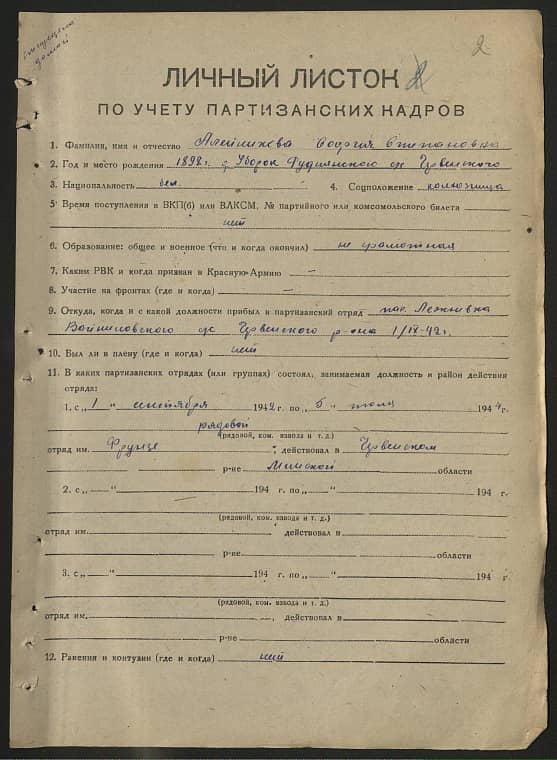 2
ЛИЧНЫЙ ЛИСТОК
ПО УЧЕТУ ПАРТИЗАНСКИХ КАДРОВ
1. Фамилия, имя и отчество Алейникова София Степановна
2. Год и место рождения 1898 г. д. Уборок Дудичского с/с Червенского
3. Национальность бел. 4. Соцположение колхозница
5. Время поступления в ВКП(б) или ВЛКСМ, № партийного или комсомольского билета
нет
6. Образование: общее и военное (что и когда окончил) не грамотная
7. Каким РВК и когда призван в Красную Армию —
8. Участие на фронтах (где и когда) —
9. Откуда, когда и с какой должности прибыл в партизанский отряд пос.
Войниловского с/с Червенского р-она 1/IX-42 г.
10. Был ли в плену (где и когда) нет
11. В каких партизанских отрядах (или группах) состоял, занимаемая должность и район действия
отряда:
1. с „ 1 “ сентября 1942 г. по „ 5 “ июля 1944 г.
рядовой
(рядовой, ком. взвода и т. д.)
отряд им. Фрунзе, действовал в Червенском
р-не Минской области
2. с „ — “ 194 г. по „ — “ 194 г.
(рядовой, ком. взвода и т. д.)
отряд им. действовал в
р-не области
3. с „ — “ 194 г. по „ — “ 194 г.
(рядовой, ком. взвода и т. д.)
отряд им. , действовал в
р-не области
12. Ранения и контузии (где и когда) нет